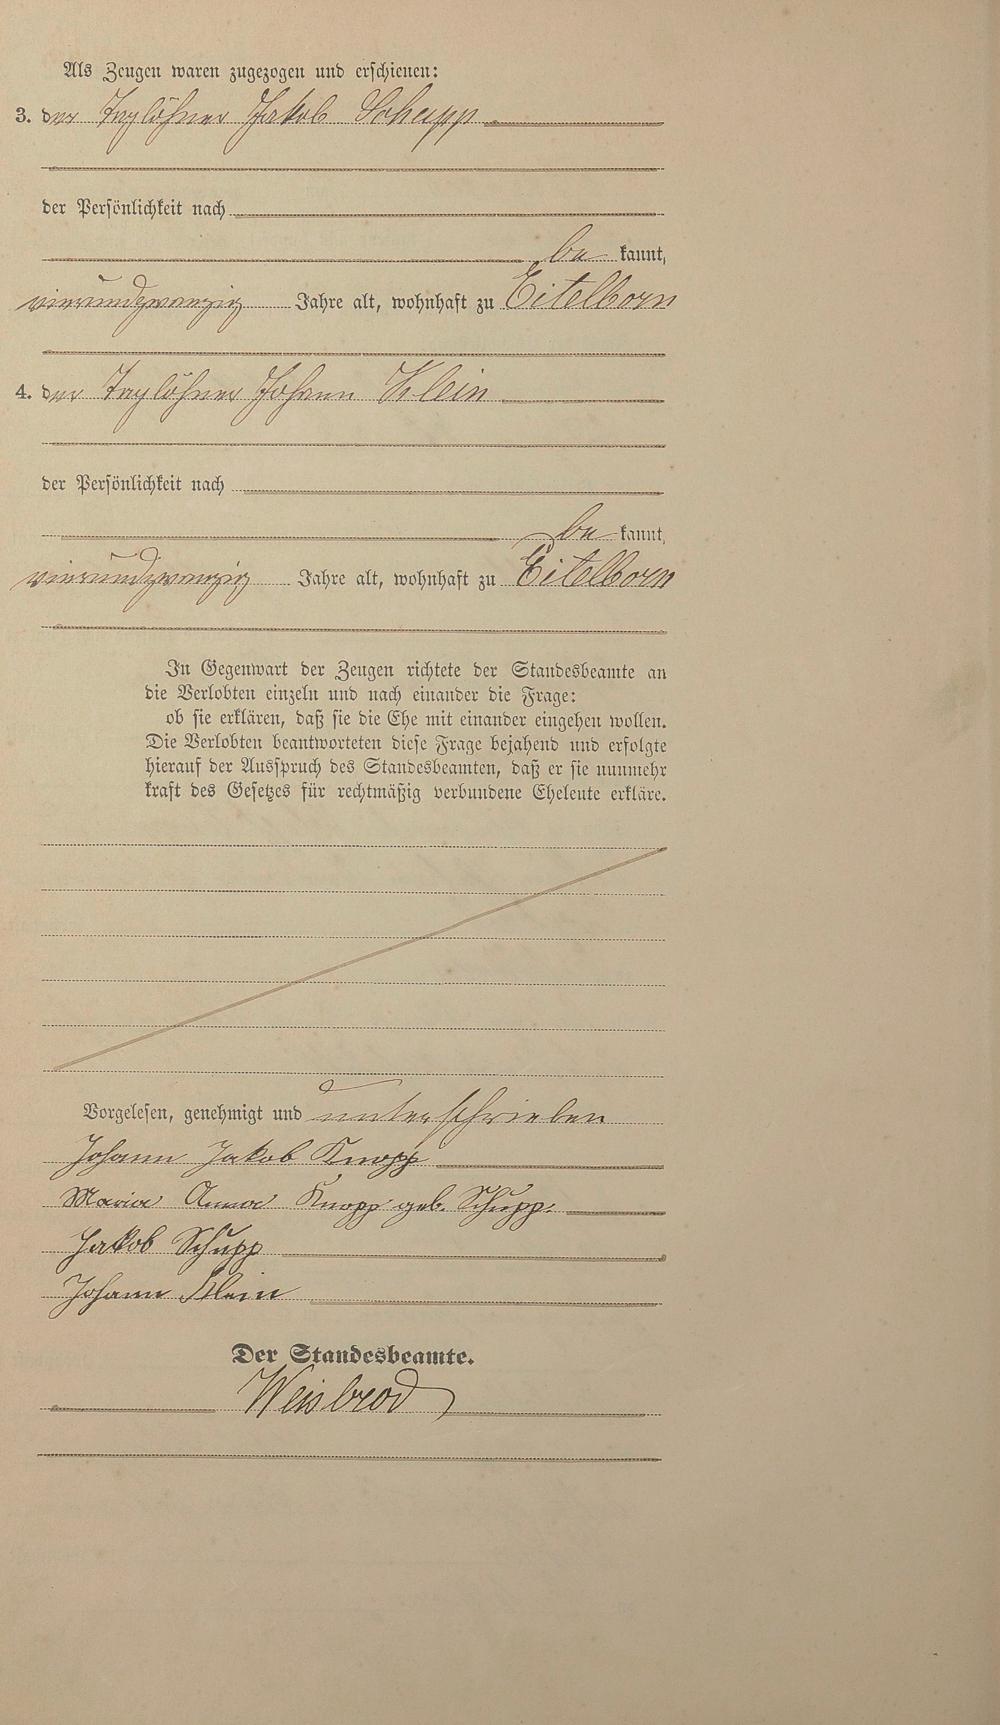 Als Zeugen waren zugezogen und erschienen:
3. der Taglöhner Jakob Schupp
der Persönlichkeit nach
be kannt,
vierundzwanzig Jahre alt, wohnhaft zu Eitelborn
4. der Taglöhner Johann Klein
der Persönlichkeit nach
be kannt,
vierundzwanzig Jahre alt, wohnhaft zu Eitelborn
In Gegenwart der Zeugen richtete der Standesbeamte an
die Verlobten einzeln und nach einander die Frage:
ob sie erklären, daß sie die Ehe mit einander eingehen wollen.
Die Verlobten beantworteten diese Frage bejahend und erfolgte
hierauf der Ausspruch des Standesbeamten, daß er sie nunmehr
kraft des Gesetzes für rechtmäßig verbundene Eheleute erkläre.
Vorgelesen, genehmigt und unterschrieben
Johann Jakob Knopp
Maria Anna Knopp geb. Schupp.
Jakob Schupp
Johann Klein
Der Standesbeamte.
Weisbrod